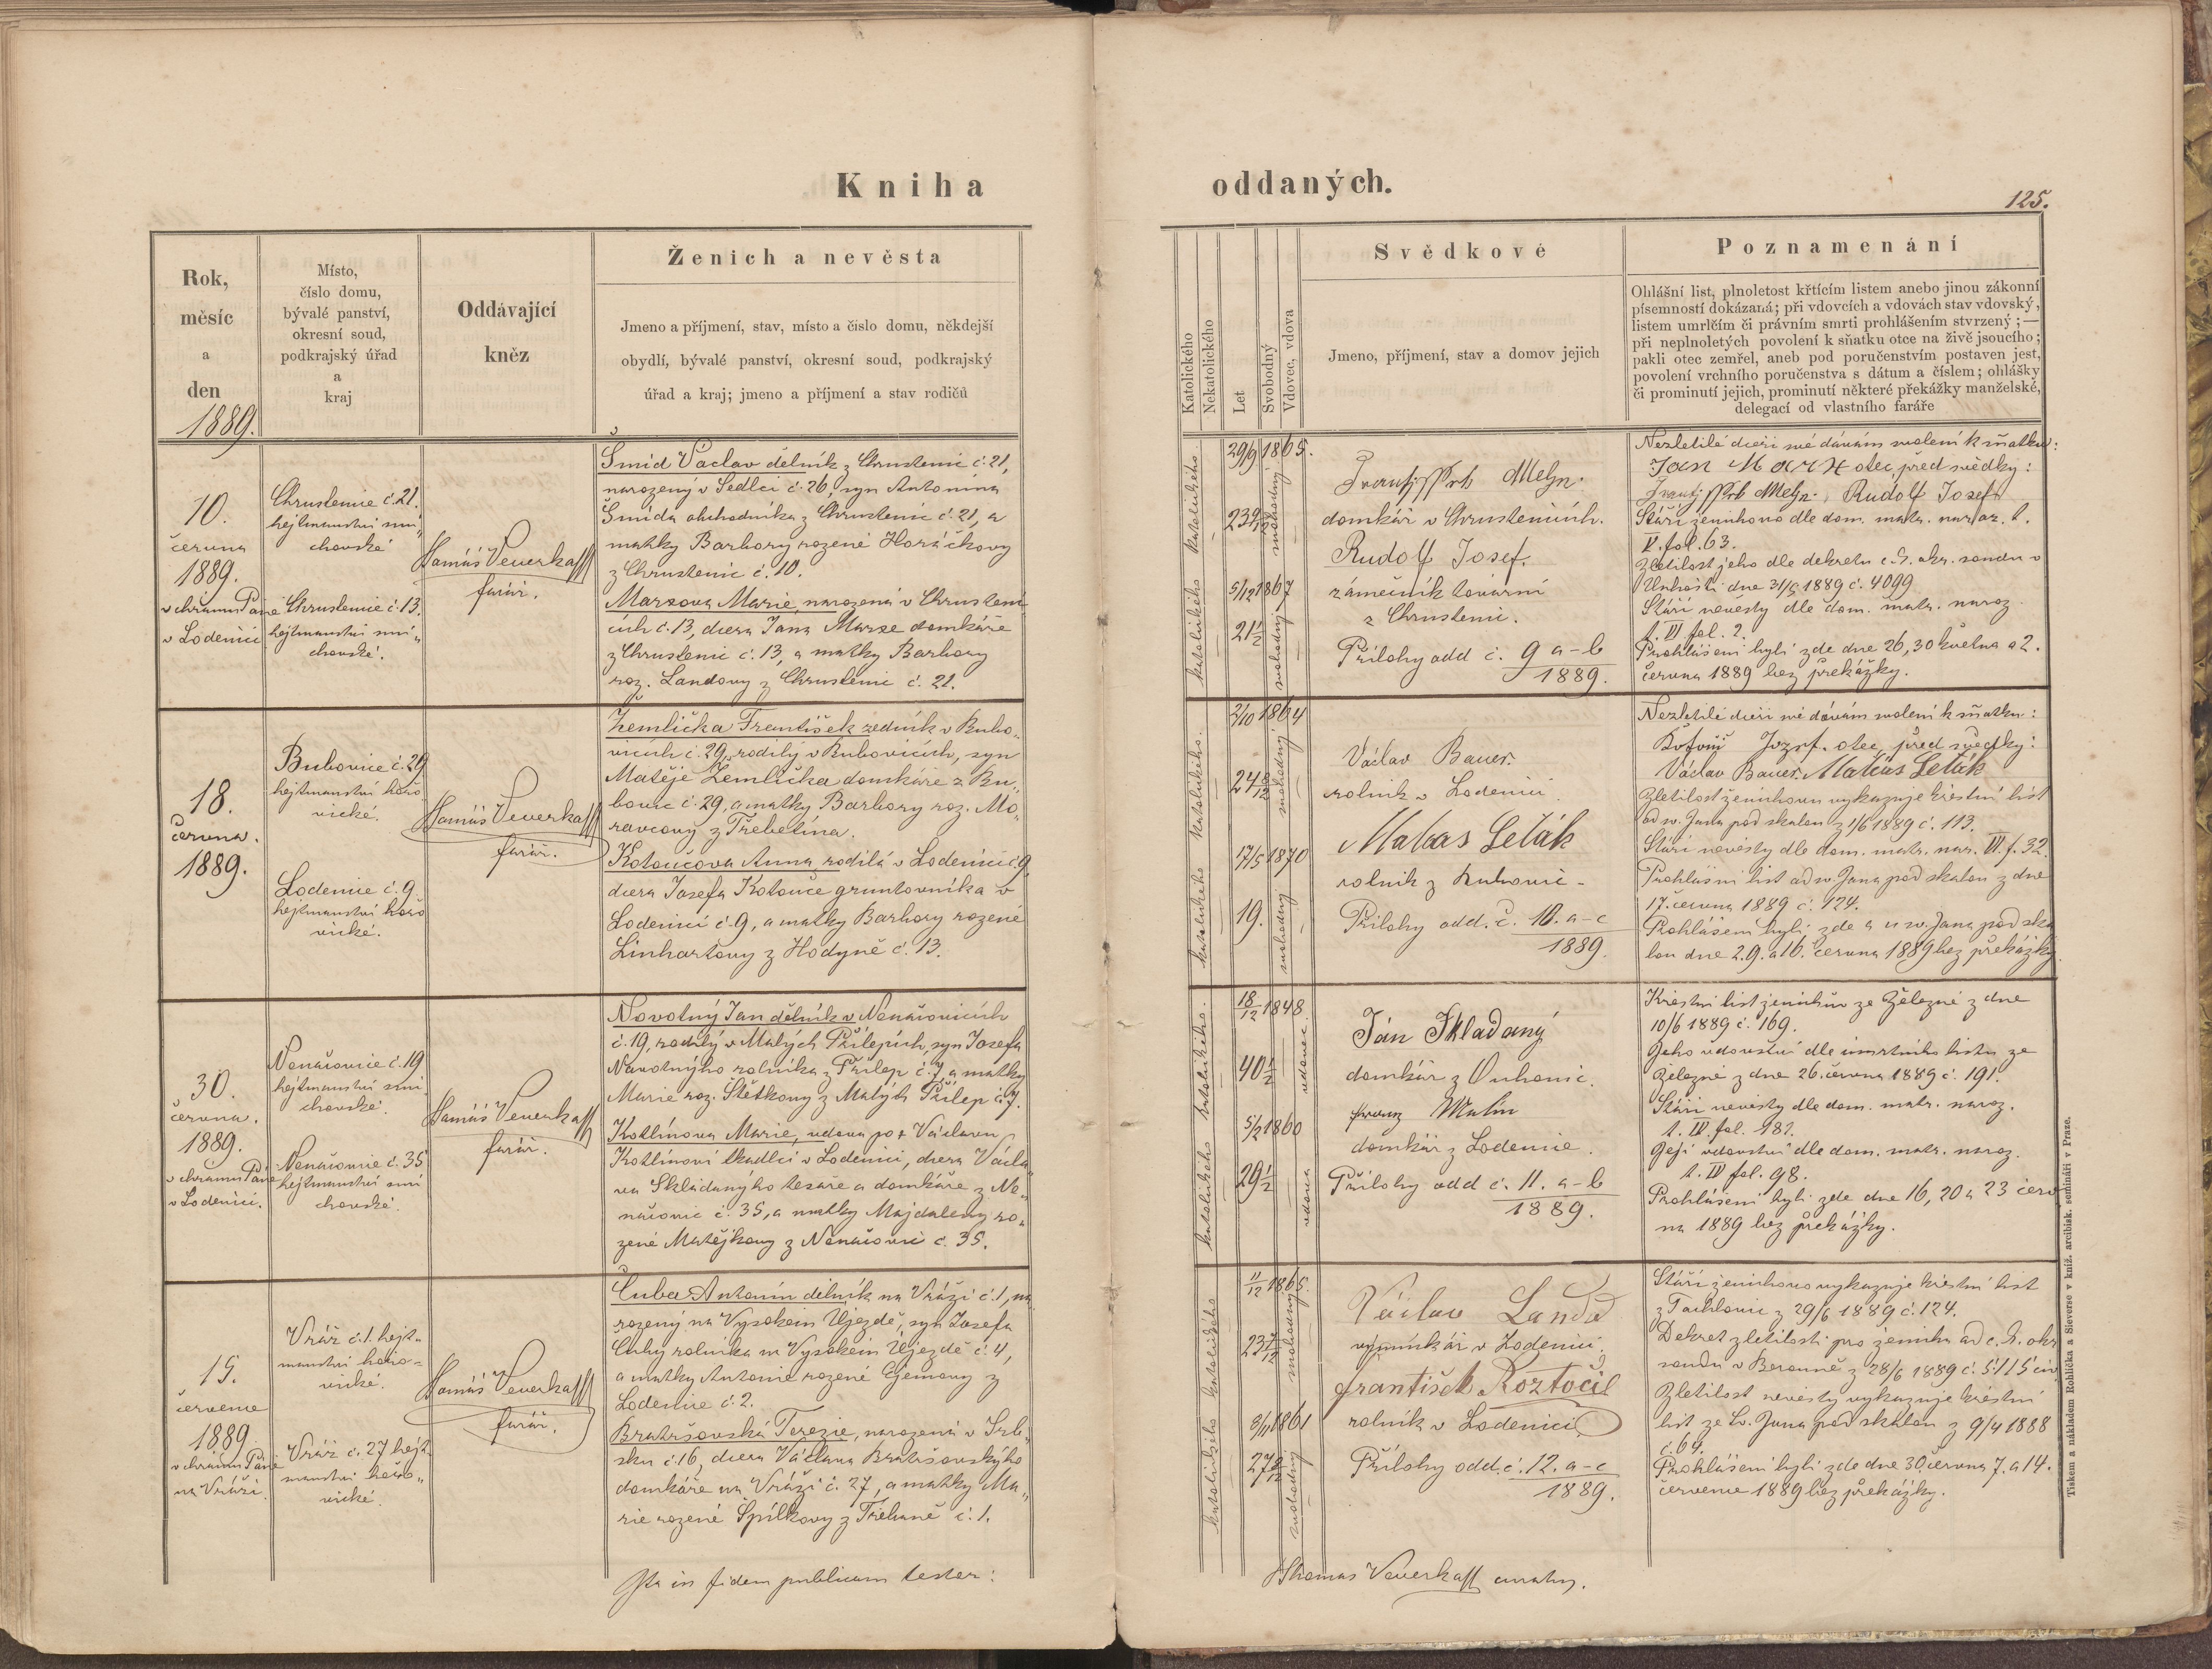 Kniha
oddaných.
125.
Rok,
měsíc
a
den
1889.
Místo,
číslo domu,
bývalé panství,
okresní soud,
podkrajský úřad
a
kraj
Oddávající
kněz
Ženich a nevěsta
Jmeno a příjmení, stav, místo a číslo domu, někdejší
obydlí, bývalé panství, okresní soud, podkrajský
úřad a kraj; jmeno a příjmení a stav rodičů
Katolického
Nekatolického
Let
Svobodný
Vdovec, vdova
Svědkové
Jmeno, příjmení, stav a domov jejich
Poznamenání
Ohlášní list, plnoletost křtícím listem anebo jinou zákonní
písemností dokázaná; při vdovcích a vdovách stav vdovský,
listem umrlčím či právním smrti prohlášením stvrzený; —
při neplnoletých povolení k sňatku otce na živě jsoucího;
pakli otec zemřel, aneb pod poručenstvím postaven jest,
povolení vrchního poručenstva s dátum a číslem; ohlášky
či prominutí jejich, prominutí některé překážky manželské,
delegací od vlastního faráře
10.
června
1889.
v chrámu Páně
v Lodenici
Chrustenice č. 21.
hejtmanství smí„
chovské
Chrustenice č. 13.
hejtmanství smí„
chovské.
Tomáš Veverka
farář.
Šmíd Václav dělník z Chrustenic č. 21,
narozený v Sedlci č. 26, syn Antonína
Šmída obchodníka z Chrustenic č. 21, a
matky Barbory rozené Horáčkovy
z Chrustenic č. 10.
Marxova Marie, narozená v Chrusteni
cích č. 13, dcera Jana Marxe domkáře
z Chrustenic č. 13, a matky Barbory
roz. Landovy z Chrustenic č. 21.
katolického
29/9 1865.
svobodný
katolického
5/12 1867
21 1/2
svobodný
domkář v Chrustenicích.
Rudolf Josef.
zámečník tovární
z Chrustenic.
Přílohy odd č. 9 a-b
1889.
Nezletilé dceři mé dávám svolení k sňatku:
Jan Marx otec, před svědky:
Rudolf Josef
Stáří ženichovo dle dom. matr. naroz. t.
V. fol. 63.
Zletilost jeho dle dekretu c. k. okr. soudu v
Unhošti dne 31/5 1889 č. 4099
Stáří nevěsty dle dom. matr. naroz.
t. IV fol. 2.
Prohlášeni byli zde dne 26, 30 května a 2.
června 1889 bez překážky.
18.
června.
1889.
Bubovice č. 29
hejtmanství hořo
vické.
Lodenice č. 9.
hejtmanství hořo
vické.
Tomáš Veverka
farář.
Žemlička František zedník v Bubo„
vicích č. 29, rodilý v Bubovicích, syn
Matěje Žemlička domkáře z Bu„
bovic č. 29, a matky Barbory roz. Mo„
ravcovy z Třebotína.
Kotoučova Anna rodilá v Lodenici č. 9,
dcera Josefa Kotouče gruntovníka v
Lodenici č. 9, a matky Barbory rozené
Linhartovy z Hodyně č. 13.
katolického
2/10 1864
24 8/12
svobodný
katolického
17/5 1870
19.
svobodný
Václav Bauer.
rolník v Lodenici.
Matias Leták
rolník z Bubovic -
Přílohy odd. č. 10. a-c
1889.
Nezletilé dceři mé dávám svolení k sňatku:
Kotouč Jozef. otec, před svědky:
Václav Bauer. Matias Leták
Zletilost ženichovu vykazuje křestní list
od sv. Jana pod skalou z 1/6 1889 č. 113.
Stáří nevěsty dle dom. matr. nar. IV. f. 32.
Prohlášní list od sv. Jana pod skalou z dne
17. června 1889 č. 124.
Prohlášeni byli zde a u sv. Jana pod ska
lou dne 2. 9. a 16. června 1889 bez překážky.
30.
června.
1889.
v chrámu Páně
v Lodenici.
Nenačovice č. 19
hejtmanství smí
chovské.
Nenačovice č. 35
hejtmanství smí
chovské.
Tomáš Veverka
farář.
Novotný Jan dělník v Nenačovicích
č. 19, rodilý v Malých Přílepích, syn Josefa
Novotnýho rolníka z Přílep č. 7, a matky
Marie roz. Štětkovy z Malých Přílep č. 7.
Kotlínova Marie, vdova po † Václavu
Kotlínovi tkadlci v Lodenici, dcera Václa„
va Skládanýho tesaře a domkáře z Ne„
načovic č. 35, a matky Majdaleny ro„
zené Matějkovy z Nenačovic č. 35.
katolického
18/12 1848.
40 1/2
vdovec
katolického
5/2 1860
29 1/2
vdova
Ján Skladaný
domkář z Ouhonic.
Franz Malin
domkář z Lodenice.
Přílohy odd č. 11. a-b
1889.
Křestní list ženichův ze Železné z dne
10/6 1889 č. 169.
Jeho vdovství dle úmrtního listu ze
Železné z dne 26. června 1889 č. 191.
Stáří nevěsty dle dom. matr. naroz.
t. IV. fol. 181.
Její vdovství dle dom. matr. naroz.
t. IV fol. 98.
Prohlášeni byli zde dne 16, 20 a 23 červ
na 1889 bez překážky.
15.
července
1889
v chrámu Páně
na Vráži.
Vráž č. 1. hejt„
manství hořo-
vické.
Vráž č. 27 hejt
manství hořo„
vické.
Tomáš Veverka
farář.
Čuba Antonín dělník na Vráži č. 1, na
rozený na Vysokém Újezdě, syn Josefa
Čuby rolníka na Vysokém Újezdě č. 4,
a matky Antonie rozené
Lodenice č. 2.
Bratršovská Terezie, narozená v Srb„
sku č. 16, dcera Václava Bratršovskýho
domkáře na Vráži č. 27, a matky Ma„
rie rozené Špílkovy z Třebaně č. 1.
katolického
11/12 1865.
23 7/12
svobodný
katolického
3/11 1861
svobodný
Václav Landa
výminkář v Lodenici.
František Roztočil
rolník v Lodenici
Přílohy odd. č. 12. a-c
1889.
Stáří ženichovo vykazuje křestní list
z Tachlovic z 29/6 1889 č. 124.
Dekret zletilosti pro ženicha od c. k. okr
soudu v Berouně z 28/6 1889 č. 5115 civ
Zletilost nevěsty vykazuje křestní
list ze Sv. Jana pod skalou z 9/4 1888
č. 64.
Prohlášeni byli zde dne 30. června 7. a 14.
července 1889 bez překážky.
Ita in fidem publicam testor:
Thomas Veverka curatus.
Tiskem a nákladem Rohlíčka a Sieverse v kníž. arcibisk. semináři v Praze.